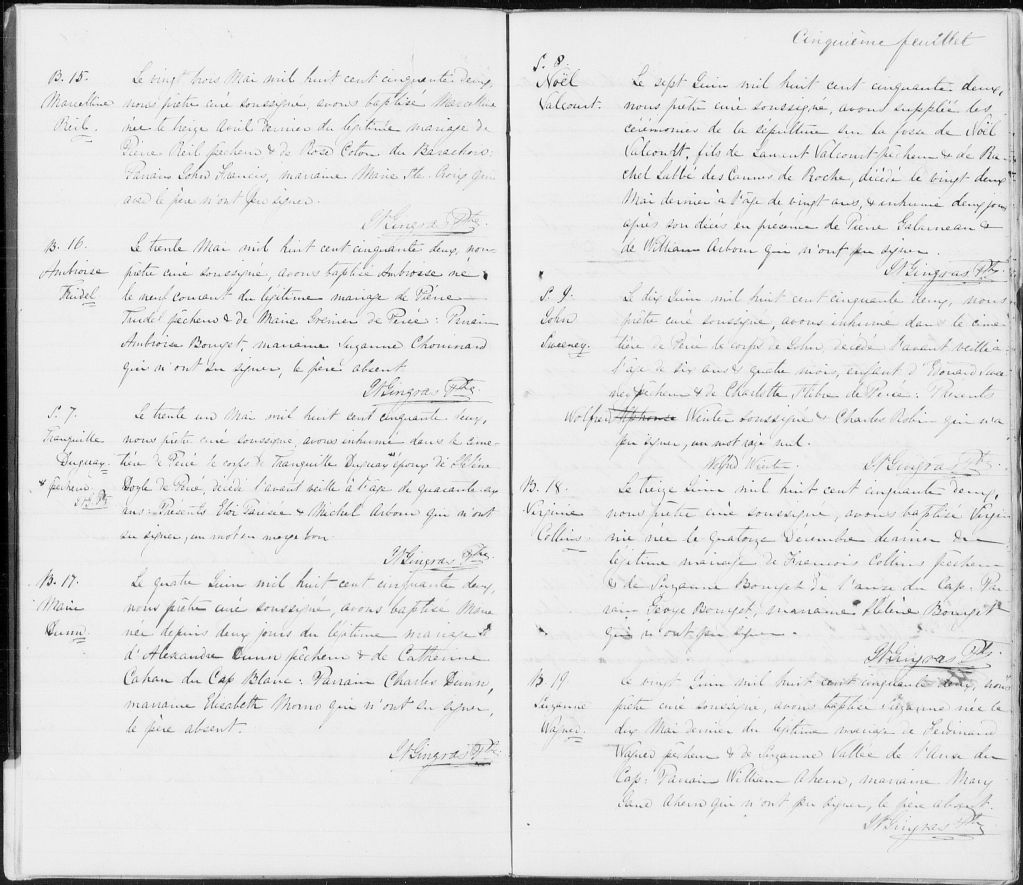 B. 15.
Marcelline
Reil.
Le vingt trois Mai mil huit cent cinquante deux,
nous prêtre curé soussigné, avons baptisé Marcelline
née le treize Avril dernier du légitime mariage de
Pierre Reil pêcheur & de Rose Coton du Barachois:
Parrain John Francis, marraine Marie Ste Croix qui
avec le père n'ont pu signer.
Gingras Ptre
B. 16.
Ambroise
Trudel
Le trente Mai mil huit cent cinquante deux, nous
prêtre curé soussigné, avons baptisé Ambroise né
le neuf courant du légitime mariage de Pierre
Trudel pêcheur & de Marie Grenier de Percé: Parrain
Ambroise Bourget, marraine Suzanne Chouinard
qui n'ont su signer, le père absent.
Gingras Ptre
S. 7.
Tranquille
Duguay.
* pêcheur
Ptre
Le trente un Mai mil huit cent cinquante deux,
nous prêtre curé soussigné, avons inhumé dans le cime-
tière de Percé le corps de Tranquille Duguay * époux de Hélène
Boyle de Percé, décédé l'avant veille à l'âge de quarante
ans. Présents Eloi & Michel Arbour qui n'ont
su signer, un mot en marge bon.
Gingras Ptre
B. 17.
Marie
Dunn.
Le quatre Juin mil huit cent cinquante deux,
nous prêtre curé soussigné, avons baptisé Marie
née depuis deux jours du légitime mariage
d'Alexandre Dunn pêcheur & de Catherine
Cahan du Cap Blanc: Parrain Charles Dunn,
marraine Elisabeth qui n'ont su signer,
le père absent.
Gingras Ptre
Cinquième feuillet
S. 8.
Noël
Valcourt.
Le sept Juin mil huit cent cinquante deux,
nous prêtre curé soussigné, avons suppléé les
cérémonies de la sépulture sur la fosse de Noël
Valcourt, fils de Laurent Valcourt pêcheur & de Ra-
chel Labbé des Cannes de Roche, décédé le vingt deux
Mai dernier à l'âge de vingt ans, & inhumé deux jours
après son décès en présence de Pierre Galarneau &
de William Arbour qui n'ont pu signer.
Gingras Ptre
S. 9.
John
Sweeney.
Le dix Juin mil huit cent cinquante deux, nous
prêtre curé soussigné, avons inhumé dans le cime-
tière de Percé le corps de John, décédé l'avant veille à
l'âge de six ans & quatre mois, enfant d'Edouard Swee
ney pêcheur & de Charlotte de Percé: Présents
Wolfred Alphonse Winter soussigné & Charles Robin qui n'a
pu signer, un mot rayé nul.
Wolfred Winter Gingras Ptre
B. 18.
Virginie
Collins.
Le treize Juin mil huit cent cinquante deux,
nous prêtre curé soussigné, avons baptisé Virgi-
nie née le quatorze Décembre dernier du
légitime mariage de François Collins pêcheur
& de Suzanne Bourget de l'anse du Cap: Par
rain George Bourget, marraine Hélène Bourget
qui n'ont pu signer.
Gingras Ptre
B. 19
Suzanne
Wafner.
Le vingt Juin mil huit cent cinquante deux, nous
prêtre curé soussigné, avons baptisé Suzanne née le
dix Mai dernier du légitime mariage de Ferdinand
Wafner pêcheur & de Suzanne Vallée de l'Anse du
Cap: Parrain William Ahern, marraine Mary
Jane Ahern qui n'ont pu signer, le père absent.
Gingras Ptre